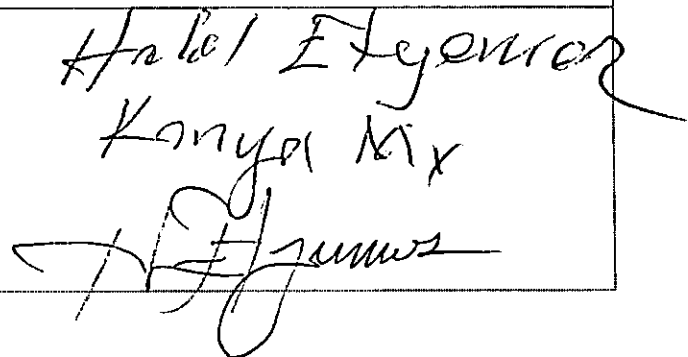 Halil Etyemez
Konya Mv